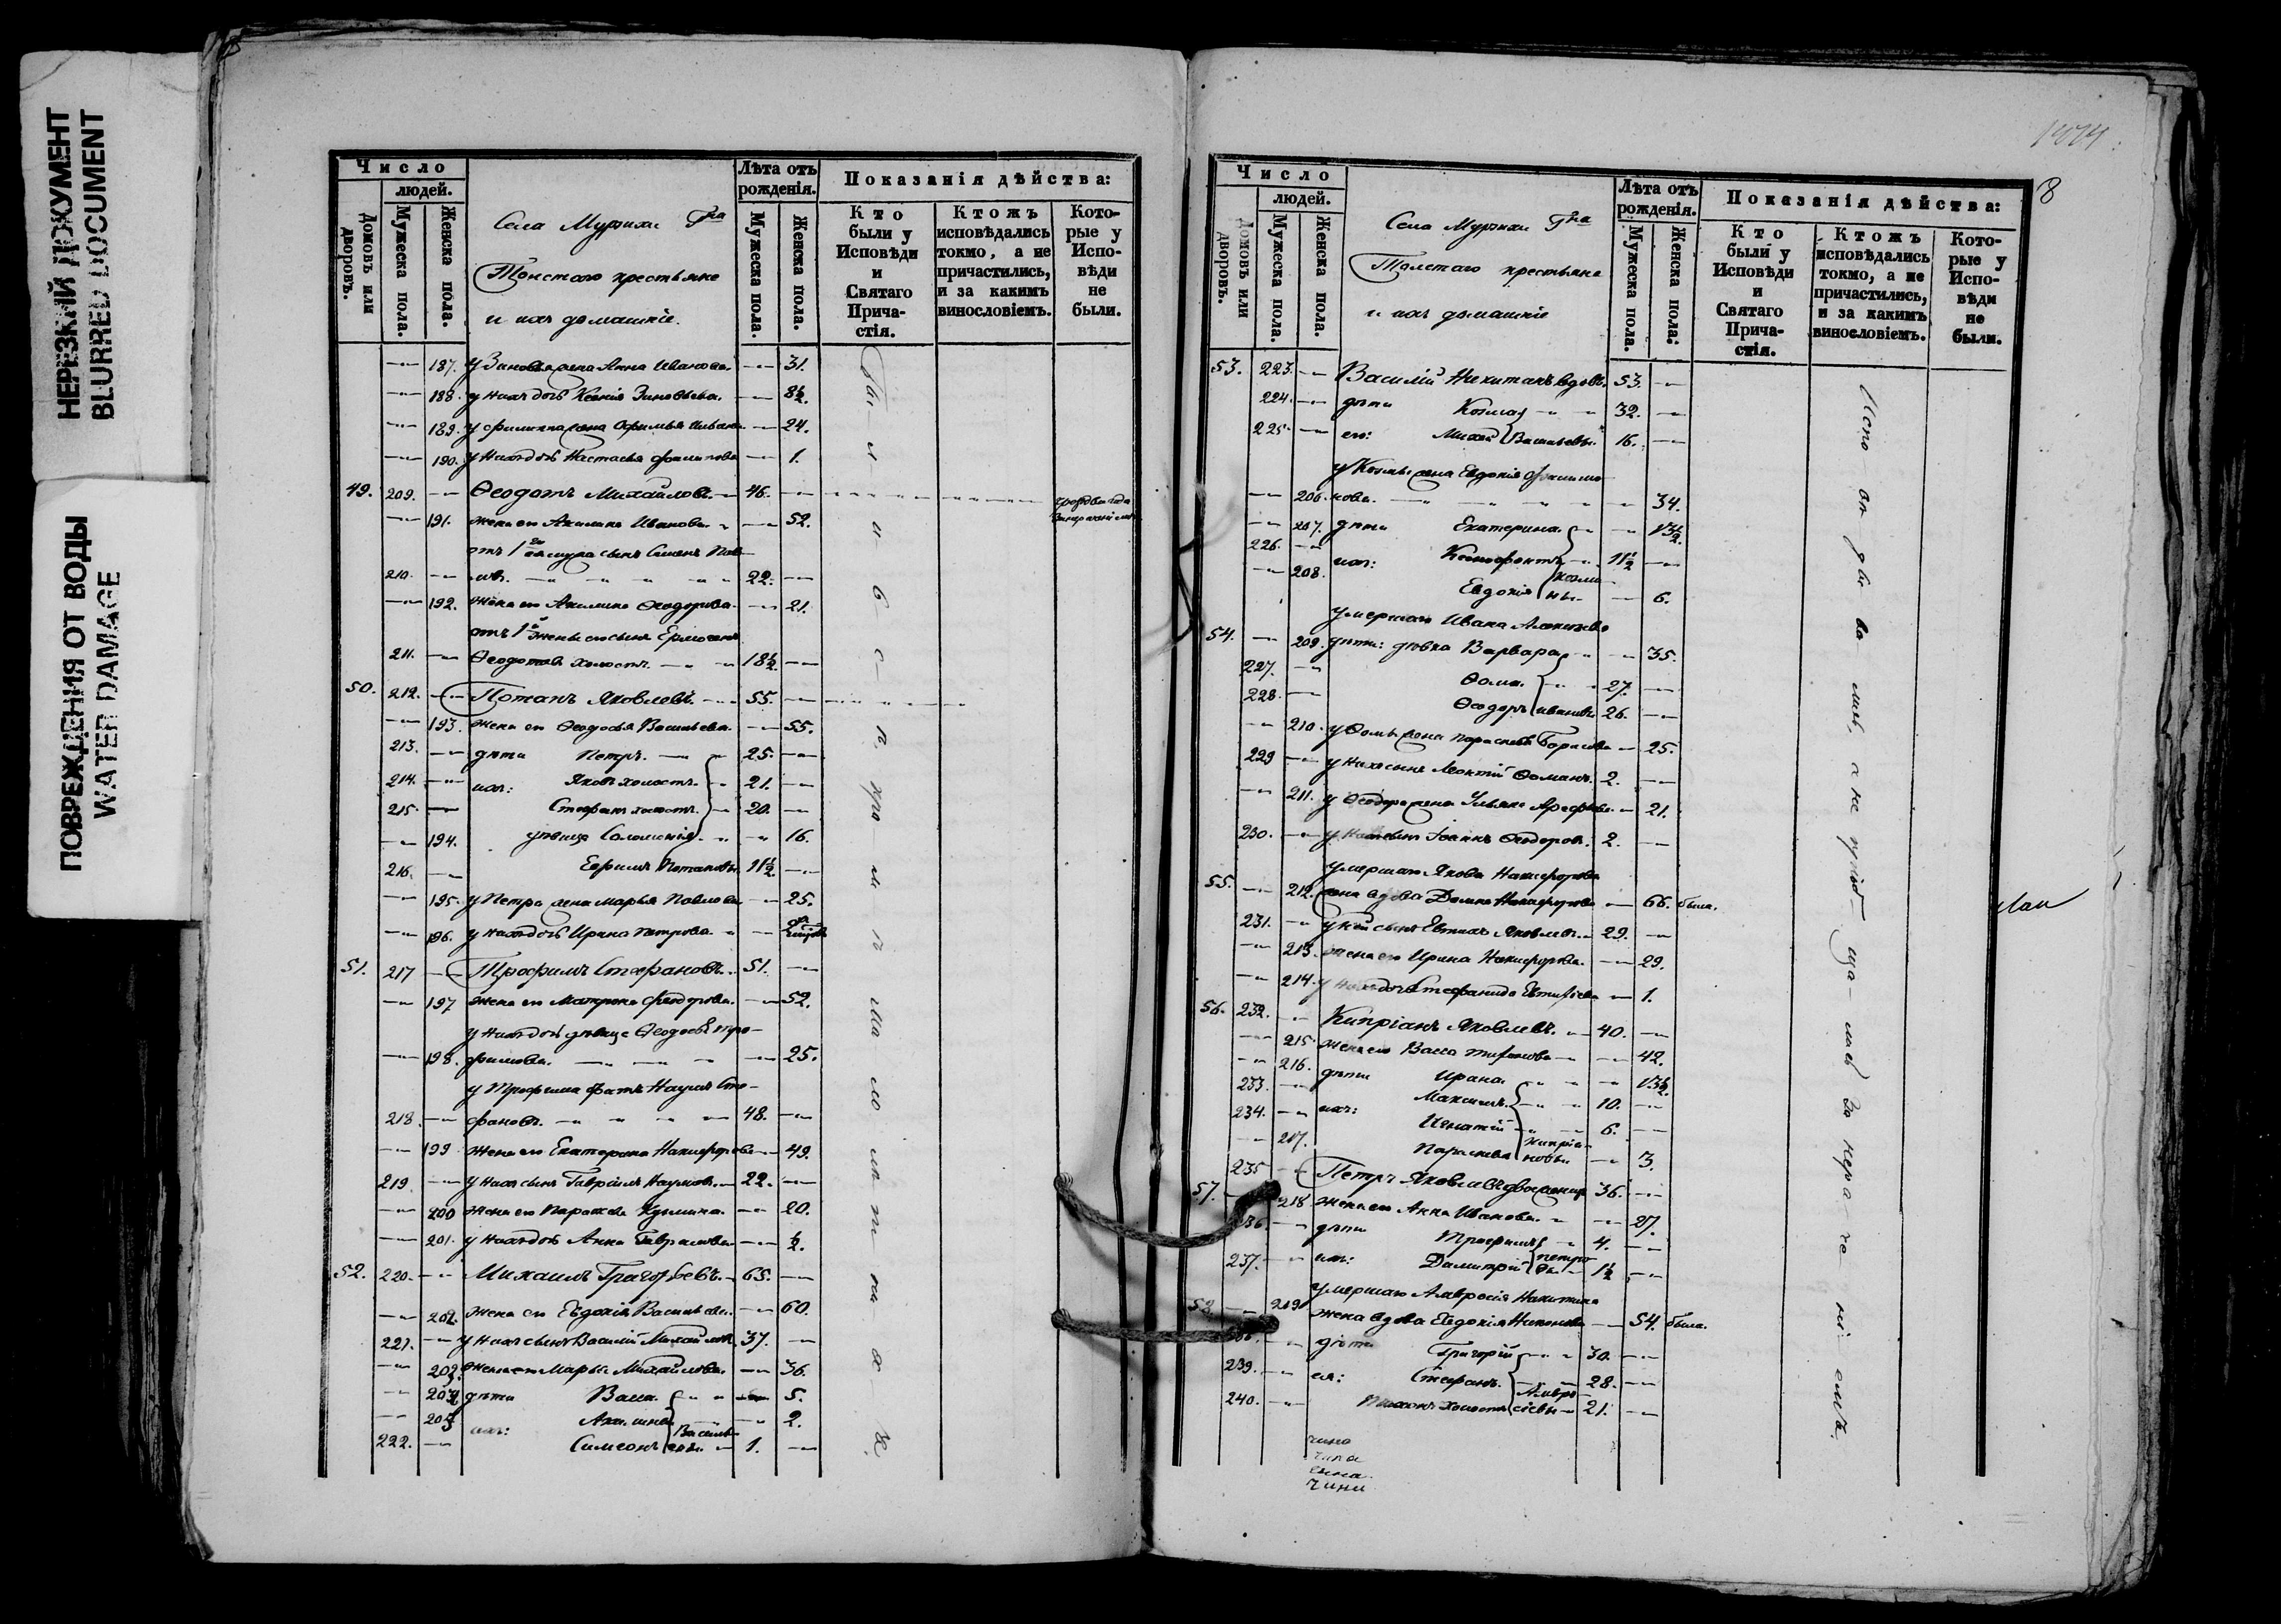 НЕРЕЗКИЙ ДОКУМЕНТ
BLURRED DOCUMENT
ПОВРЕЖДЕНИЯ ОТ ВОДЫ
WATER DAMAGE
Число
людей.
Домовъ или дворовъ.
Мужеска пола.
Женска пола.
Села Гна
Толстаго крестьяне
и ихъ домашніе.
Лѣта отъ рожденія.
Мужеска пола.
Женска пола.
Показанія дѣйства:
Кто были у Исповѣди и Святаго Прича-стія.
Ктожъ исповѣдались токмо, а не причастились, и за какимъ винословіемъ.
Кото-рые у Испо-вѣди не были.
187. у жена Анна Иванова. 31.
188. у нихъ дочь Ксенія Зиновьева. 8½.
189. у Филиппа жена 24.
190. у нихъ дочь Настасья Филипова 1.
49. 209. Ѳеодотъ Михайловъ. 46.
191. жена его Акилина Иванова. 52.
отъ 1го ея мужа сынъ
210. 22.
192. жена его Акилина Ѳеодорова. 21.
отъ 1й жены его сынъ
211. Ѳеодотовъ холостъ. 18½.
50. 212. Потапъ Яковлевъ. 55.
193. жена его Ѳеодосья Васильева. 55.
213. дѣти Петръ. 25.
214. ихъ: Яковъ холостъ. 21.
215. Стефанъ холостъ. 20.
194. дѣвица Соломонія. 16.
216. Ефимъ Потаповы. 11½
195. у Петра жена Марья Павлова 25.
196. у нихъ дочь Ирина Петрова. 2
51. 217 Трофимъ Стефановъ. 51.
197 жена его Матрона Ѳеодорова. 52.
у нихъ дочь дѣвица Ѳеодосья Тро-
198. фимова. 25.
у Трофима братъ Наумъ Сте-
218 фановъ. 48.
199 жена его Екатерина Никифорова 49.
219. у нихъ сынъ Гавріилъ Наумовъ. 22.
200 жена его 20.
201. у нихъ дочь Анна Гаврилова ½.
52. 220. Михаилъ Григорьевъ. 65.
202. жена его Евдокія Васильева. 60.
221. у нихъ сынъ Василій Михайловъ. 37.
203. жена его Марья Михайлова. 36.
204 дѣти Васса. 5.
205 ихъ: 2.
222. Симеонъ Василь-евы 1.
Были исп
Число
людей.
Домовъ или дворовъ.
Мужеска пола.
Женска пола.
Села Гна
Толстаго крестьяне
и ихъ домашніе
Лѣта отъ рожденія.
Мужеска пола.
Женска пола.
Показанія дѣйства:
Кто были у Исповѣди и Святаго Прича-стія.
Ктожъ исповѣдались токмо, а не причастились, и за какимъ винословіемъ.
Кото-рые у Испо-вѣди не были.
8
53. 223. Василій Никитинъ вдовъ. 53.
224. дѣти Козма 32.
225. его: Васильевы. 16.
у Козмы жена Евдокія Филимо-
206. нова. 34.
207. дѣти Екатерина. 13½.
226. ихъ: Ксенофонтъ 11½
208. Евдокія Козми-ны. 6.
54. умершаго Ивана
209. дѣти: дѣвка Варвара 35.
227. Ѳома. 27.
228. Ѳеодоръ Ивановы 26.
210. у Ѳомы жена Борисова 25.
229 у нихъ сынъ Леонтій Ѳоминъ. 2.
211. у Ѳеодора жена Ульяна 21.
230. у нихъ сынъ Іоаннъ Ѳеодоровъ. 2.
55. умершаго Якова Никифорова
212. жена вдова Домна Никифорова 66. была.
231. у ней сынъ Яковлевъ. 29.
213. жена его Ирина Никифорова. 29.
214. у нихъ дочь Стефанида 1.
56. 232. Кипріанъ Яковлевъ. 40.
215. жена его Васса 42.
216. дѣти Ирина. 13½.
233. Максимъ. 10.
234. ихъ: Игнатій 6.
217. Параскева Кипріа-новы. 3.
57. 235 Петръ Яковлевъ 36.
218 жена его Анна Иванова. 27.
236. дѣти Трофимъ 4.
237. ихъ: Димитрій Петро-вы 1½
58. умершаго Амвросія Никитина
219 жена вдова Евдокія 54. была.
дѣти Григорій 30.
239. ея: Стефанъ. 28.
240. холостъ Амвро-сіевы 21.
Исповѣдовались а не пріобщались за нераченіемъ.